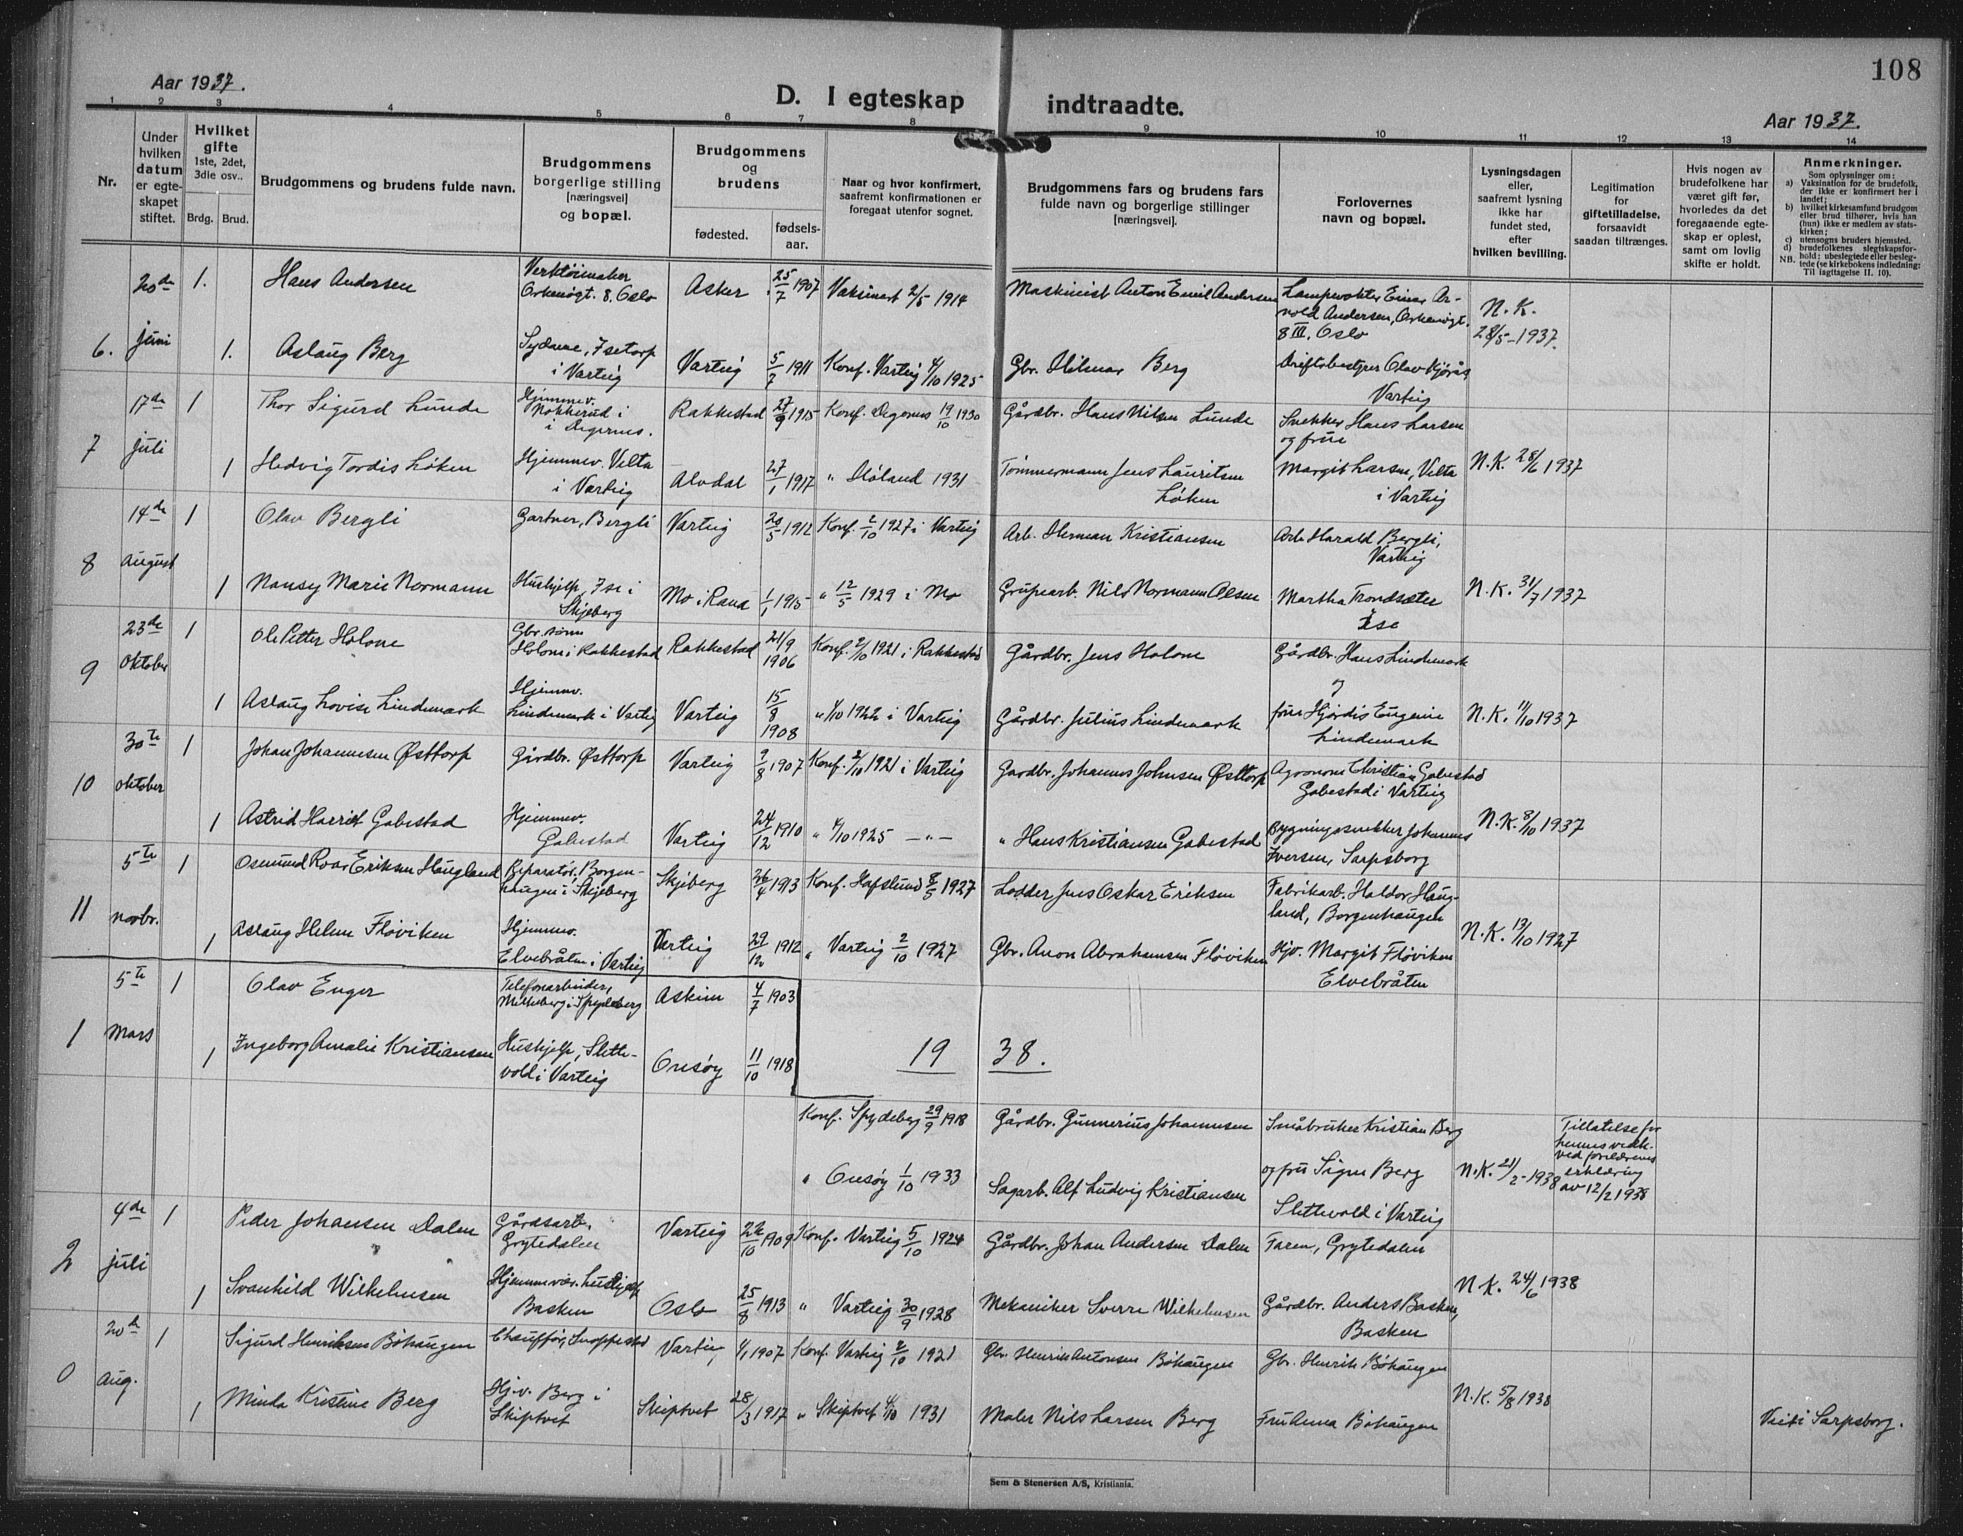 108
Aar 1937.
D. I egteskap indtraadte.
Aar 1937.
1 2 3 4 5 6 7 8 9 10 11 12 13 14
Nr.
Under hvilken datum er egteskapet stiftet.
Hvilket gifte 1ste, 2det, 3die osv..
Brdg. Brud.
Brudgommens og brudens fulde navn.
Brudgommens borgerlige stilling [næringsvei] og bopæl.
Brudgommens og brudens
fødested. fødsels-aar.
Naar og hvor konfirmert, saafremt konfirmationen er foregaat utenfor sognet.
Brudgommens fars og brudens fars fulde navn og borgerlige stillinger [næringsvei].
Forlovernes navn og bopæl.
Lysningsdagen eller, saafremt lysning ikke har fundet sted, efter hvilken bevilling.
Legitimation for giftetilladelse, forsaavidt saadan tiltrænges.
Hvis nogen av brudefolkene har været gift før, hvorledes da det foregaaende egteskap er opløst, samt om lovlig skifte er holdt.
Anmerkninger.
Som oplysninger om:
a) Vaksination for de brudefolk, der ikke er konfirmert her i landet;
b) hvilket kirkesamfund brudgom eller brud tilhører, hvis han (hun) ikke er medlem av statskirken;
c) utensogns bruders hjemsted.
d) brudefolkenes slegtskapsforhold: ubeslegtede eller beslegtede (se kirkebokens indledning:
NB. Til iagttagelse II. 10).
6. 20de juni 1. Hans Andersen Verktøimaker Orknøigt. 8. Oslo Asker 25/7 1907 Vaksinert 2/5 1914 Maskinist Anton Emil Andersen Lampevokter Einar Arnold Andersen, Orknøigt. 8 III, Oslo N.K. 28/5-1937.
1. Aslaug Berg Sydame, Isetorp i Varteig Varteig 5/7 1911 Konf. Varteig 4/10 1925 Gbr. Hilmar Berg Driftsbestyrer Olav Kjørås Varteig
7 17de juli 1 Thor Sigurd Lunde Hjemmev. Nokkerud i Degernes. Rakkestad 27/9 1915 Konf. Degernes 19/10 1930 Gårdbr. Hans Nilsen Lunde Snekker Hans Larsen og frue
1 Hedvig Tordis Løken Hjemmev. Velta i Varteig Alvdal 27/1 1917 " Høland 1931 Tømmermann Jens Lauritsen Løken Margit Larsen, Velta i Varteig N.K. 28/6 1937
8 14de august 1 Olav Bergli Gartner, Bergli Varteig 20/5 1912 Konf. 2/10 1927 i Varteig Arb. Herman Kristiansen Arb. Harald Bergli, Varteig
1 Nansy Marie Normann Hushjelp, Ise i Skjeberg Mo i Rana 1/1 1915 " 12/5 1929 i Mo Grubearb. Nils Normann Olsen Martha Trondsæter Ise N.K. 31/7 1937
9 23de oktober 1 Ole Petter Holone Gbr. sønn Holone i Rakkestad Rakkestad 21/9 1906 Konf. 2/10 1921 i Rakkestad Gårdbr. Jens Holone Gårdbr. Hans Lindemark og
1 Aslaug Lovise Lindemark Hjemmv. Lindemark i Varteig Varteig 15/8 1908 " 1/10 1922 i Varteig Gårdbr. Julius Lindemark frue Hjørdis Eugenie Lindemark N.K. 11/10 1937
10 30te oktober 1 Johan Johannesen Østtorp Gårdbr. Østtorp Varteig 9/8 1907 Konf. 2/10 1921 i Varteig Gardbr. Johannes Johnsen Østtorp Agronom Christian Gabestad Gabestad i Varteig
1 Astrid Harriet Gabestad Hjemmev. Gabestad Varteig 24/12 1910 " 4/10 1925 — " — " Hans Kristiansen Gabestad Bygningssnekker Johannes Iversen, Sarpsborg N.K. 8/10 1937
11 5te novbr. 1 Osmund Roar Eriksen Haugland Reparatør, Borgenhaugen i Skjeberg Skjeberg 26/4 1913 Konf. Hafslund 8/5 1927 Lodder Jens Oskar Eriksen Fabrikarb. Haldor Haugland, Borgenhaugen
1 Aslaug Helene Fløviken Hjemmev. Elvebråten i Varteig Varteig 29/12 1912 " Varteig 2/10 1927 Gbr. Anon Abrahamsen Fløviken Hjv. Margit Fløviken Elvebråten N.K. 13/10 1927
1 5te mars 1 Olav Enger Telefonarbeider, Mælleberg i Spydeberg Askim 4/7 1903
1 Ingeborg Amalie Kristiansen Hushjelp, Slettevold i Varteig Onsøy 11/10 1918
1938.
Konf. Spydeberg 29/9 1918 Gårdbr. Gunnerius Johannesen Småbruker Kristian Berg
" Onsøy 1/10 1933 Sagarb. Alf Ludvig Kristiansen og fru Signe Berg Slettevold i Varteig N.K. 21/2-1938 Tillatelse for hennes vedk. ved foreldrenes erklæring av 12/2 1938
2 4de juli 1 Peder Johansen Dalen Gårdsarb. Grytedalen Varteig 22/10 1909 Konf. Varteig 5/10 1924 Gårdbr. Johan Andersen Dalen Faren, Grytedalen
1 Svanhild Wilhelmsen Hjemmevær. hushjelp Basken Oslo 25/8 1913 " Varteig 30/9 1928 Mekaniker Sverre Wilhelmsen Gårdbr. Anders Basken, Basken N.K. 24/6 1938
0 20de aug. 1 Sigurd Henriksen Bøhaugen Chauffør, Snoppestad Varteig 1/1 1907 Konf. Varteig 2/10 1921 Gbr. Henrik Antonsen Bøhaugen Gbr. Henrik Bøhaugen
1 Minda Kristine Berg Hj.v. Berg i Skiptvet Skiptvet 28/3 1917 " Skiptvet 4/10 1931 Maler Nils Larsen Berg Fru Anna Bøhaugen N.K. 5/8 1938 Viet i Sarpsborg.
Sem & Stenersen A/S, Kristiania.